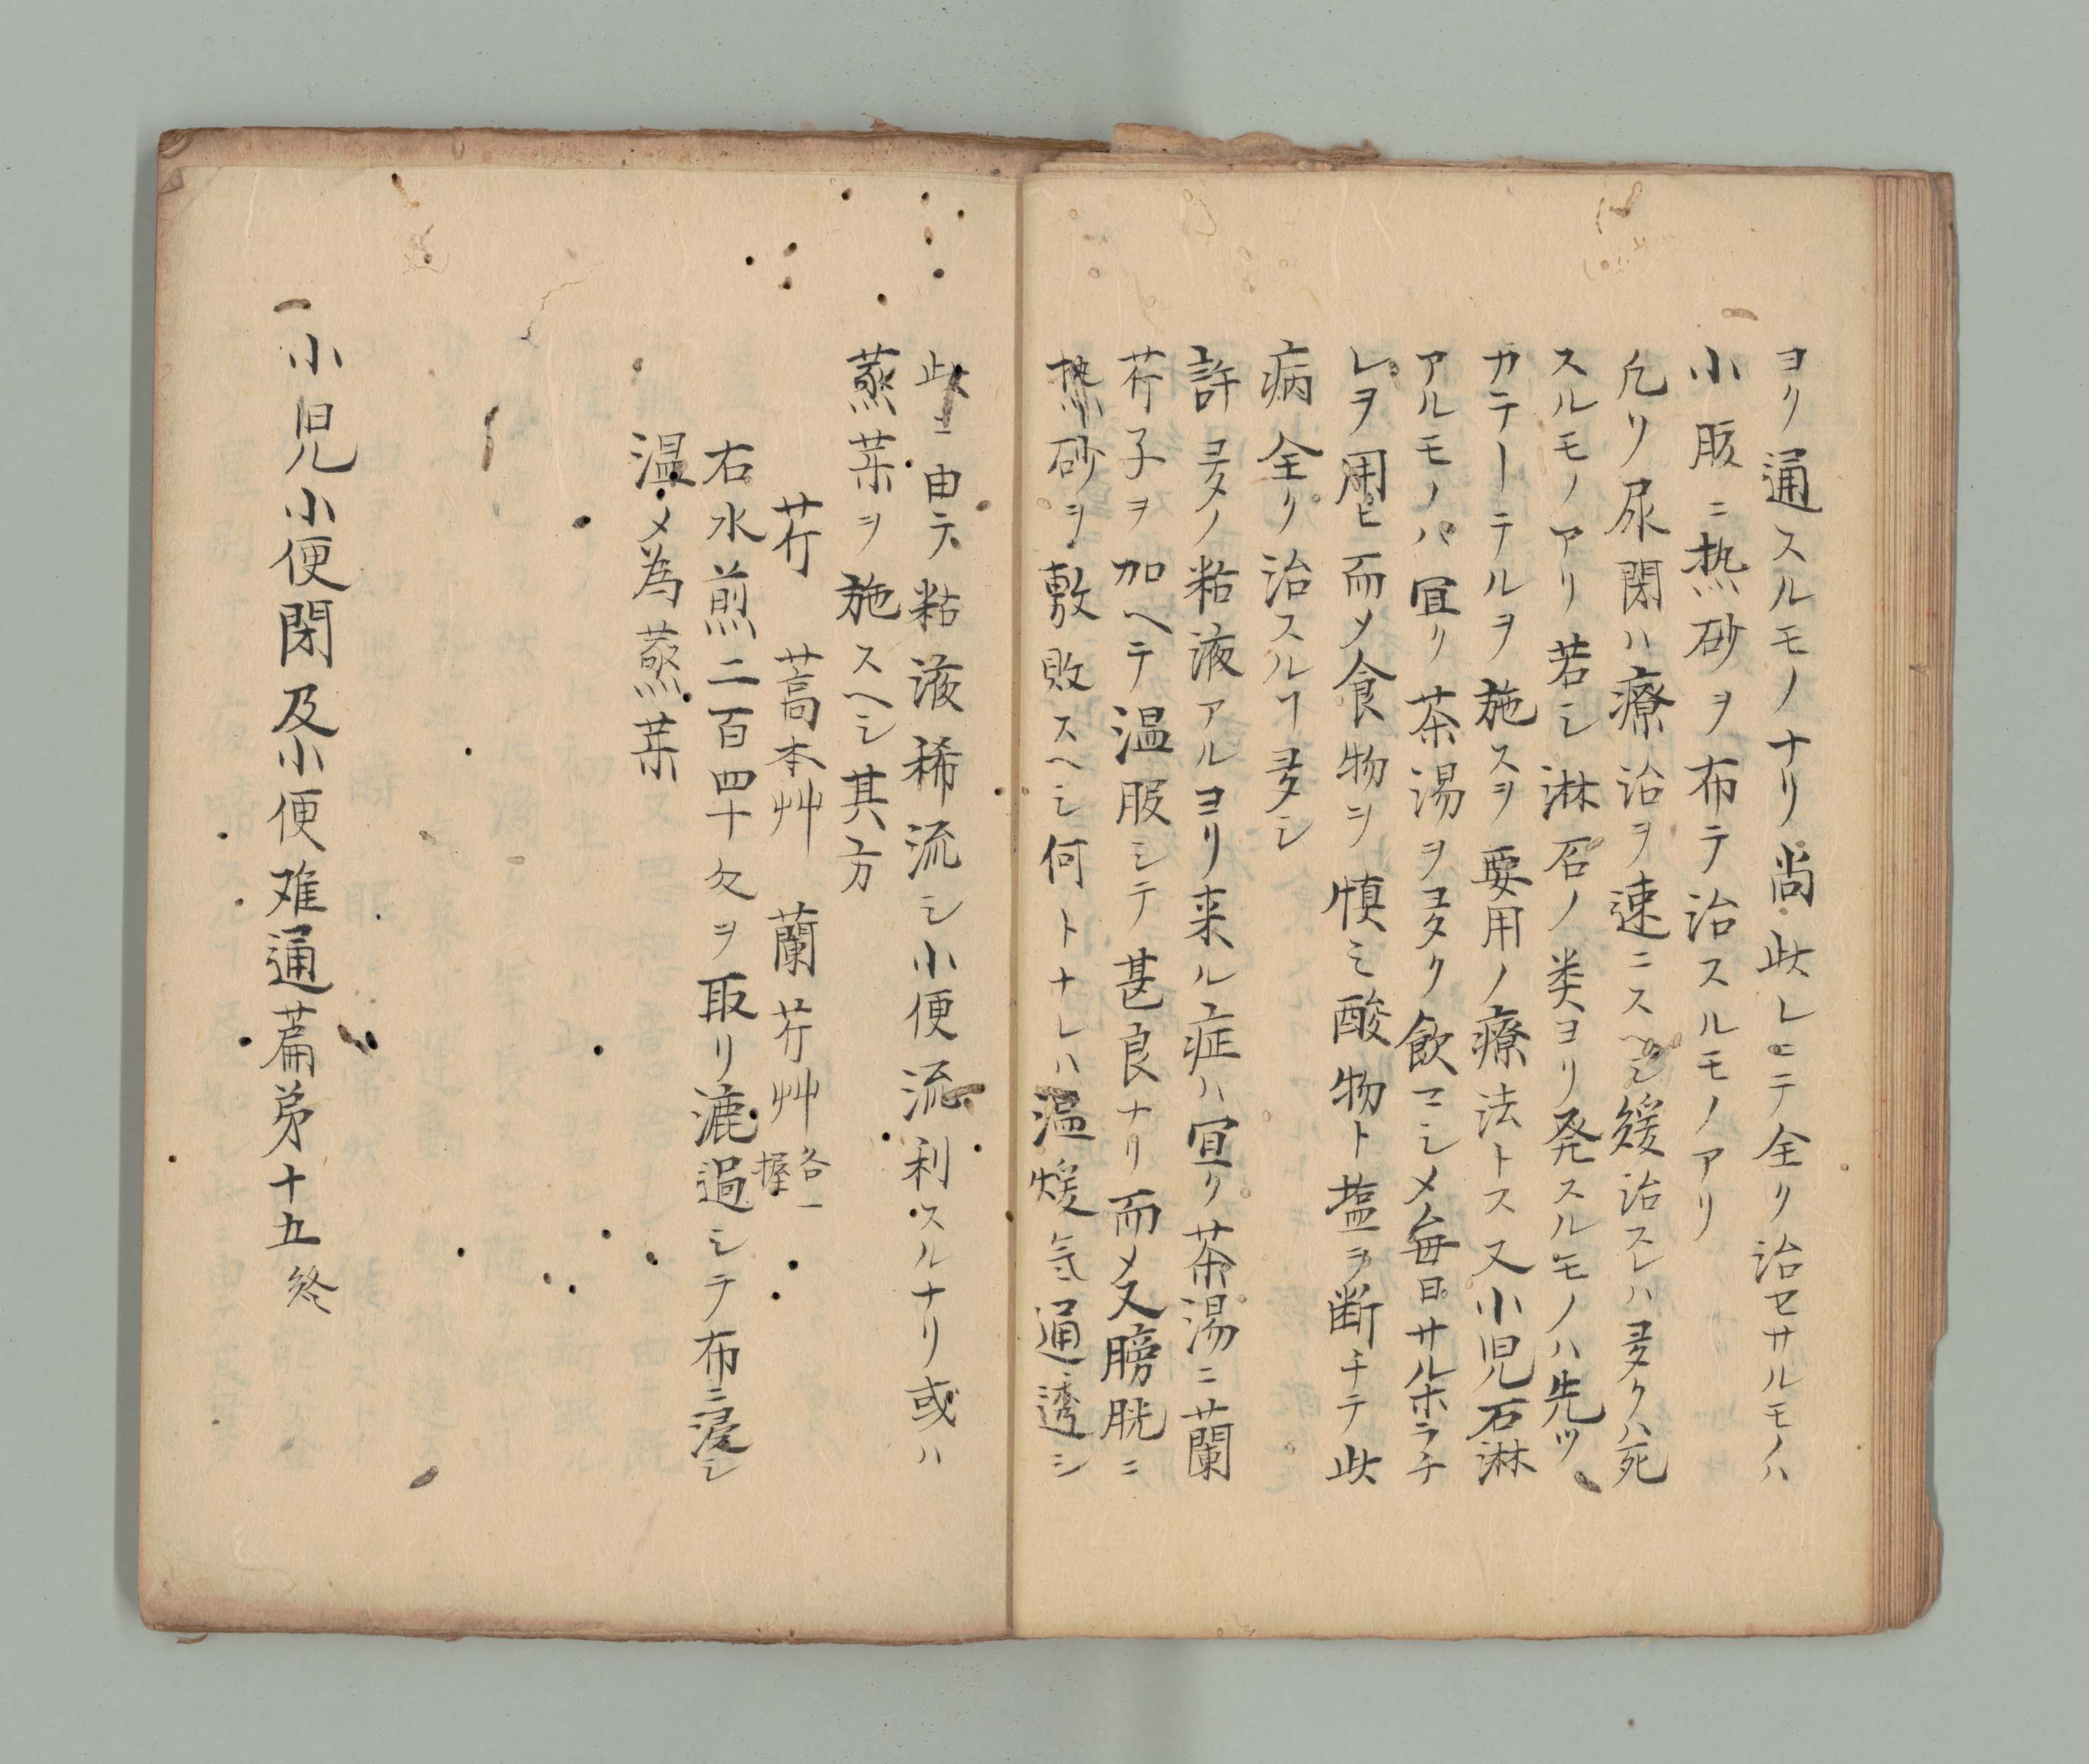 ヨリ通スルモノナリ尚此レニテ全ク治セサルモノハ
小腹ニ热砂ヲ布テ治スルモノアリ
凡ソ尿閉ハ療治ヲ速ニスヘシ緩治スレハ多クハ死
スルモノアリ若シ淋石ノ类ヨリ発スルモノハ先ツ
カテーテルヲ施スヲ要用ノ療法トス又小児石淋
アルモノハ宜ク茶湯ヲ多ク飲マシメ毎日サルホラチ
レヲ用ヒ而メ食物ヲ慎ミ酸物ト塩ヲ断チテ此
病全ク治スルヿ多シ
許多ノ粘液アルヨリ来ル症ハ宜ク茶湯ニ蘭
芹子ヲ加ヘテ温服シテ甚良ナリ而メ又膀胱ニ
热砂ヲ敷敗スヘシ何トナレハ温煖気通透シ
此ニ由テ粘液稀流シ小便流利スルナリ或ハ
蒸菜ヲ施スヘシ其方
芹 蒿本艸 蘭芹艸 各一握
右水煎二百四十文ヲ取リ漉過シテ布ニ浸シ
温メ為蒸菜
一小児小便閉及小便难通篇第十五終